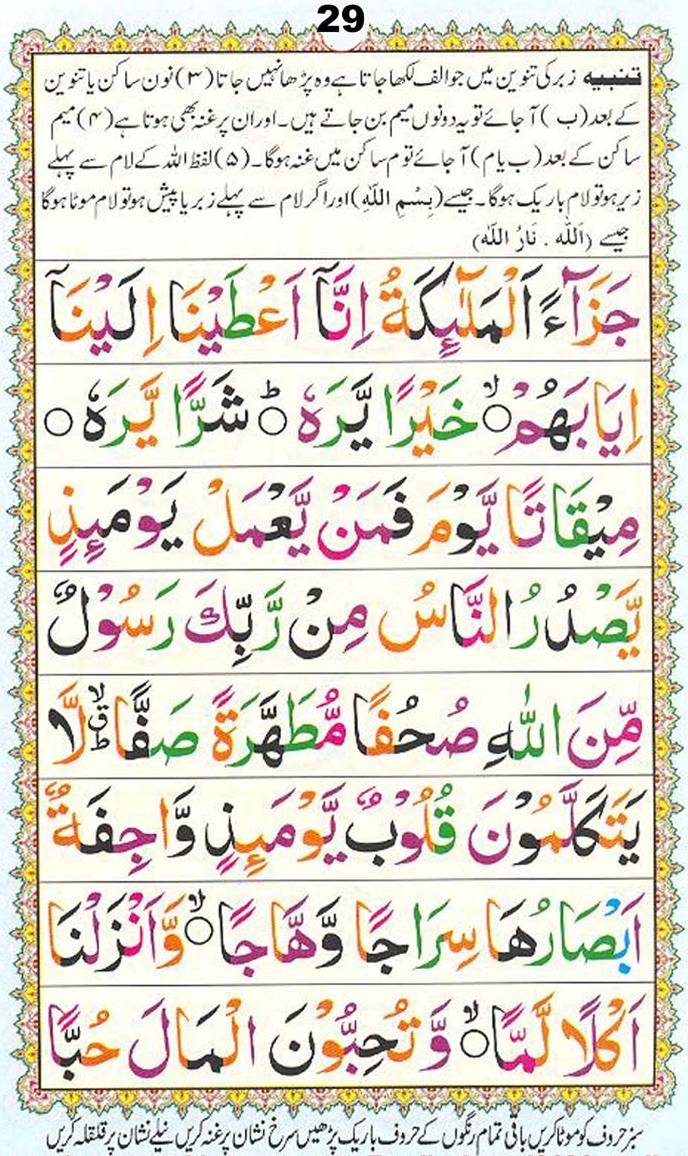 29
تنبیہ زبر کی تنوین میں جو الف لکھا جاتا ہے وہ پڑھا نہیں جاتا (۳) نون ساکن یا تنوین
کے بعد (ب) آ جائے تو یہ دونوں میم بن جاتے ہیں۔ اور ان پر غنہ بھی ہوتا ہے (۴) میم
ساکن کے بعد (ب یا م) آ جائے تو م ساکن میں غنہ ہوگا۔ (۵) لفظ اللہ کے لام سے پہلے
زیر ہو تو لام باریک ہوگا۔ جیسے (بِسْمِ اللّٰهِ) اور اگر لام سے پہلے زبر یا پیش ہو تو لام موٹا ہوگا
جیسے (اَللّٰه . نَارُ اللّٰه)
جَزَآءً اَلْمَلٰٓئِكَةُ اِنَّآ اَعْطَيْنَا اِلَيْنَآ
اِيَابَهُمْ ۙ خَيْرًا يَّرَهٗ ؕ شَرًّا يَّرَهٗ ○
مِيْقَاتًا يَّوْمَ فَمَنْ يَّعْمَلْ يَوْمَئِذٍ
يَّصْدُرُ النَّاسُ مِنْ رَّبِّكَ رَسُوْلٌ
مِّنَ اللّٰهِ صُحُفًا مُّطَهَّرَةً صَفًّا لَّا
يَتَكَلَّمُوْنَ قُلُوْبٌ يَّوْمَئِذٍ وَّاجِفَةٌ
اَبْصَارُهَا سِرَاجًا وَّهَّاجًا ۙ وَّاَنْزَلْنَا
اَكْلًا لَّمًّا ۙ وَّ تُحِبُّوْنَ الْمَالَ حُبًّا
سبز حروف کو موٹا کریں باقی تمام رنگوں کے حروف باریک پڑھیں سرخ نشان پر غنہ کریں نیلے نشان پر قلقلہ کریں